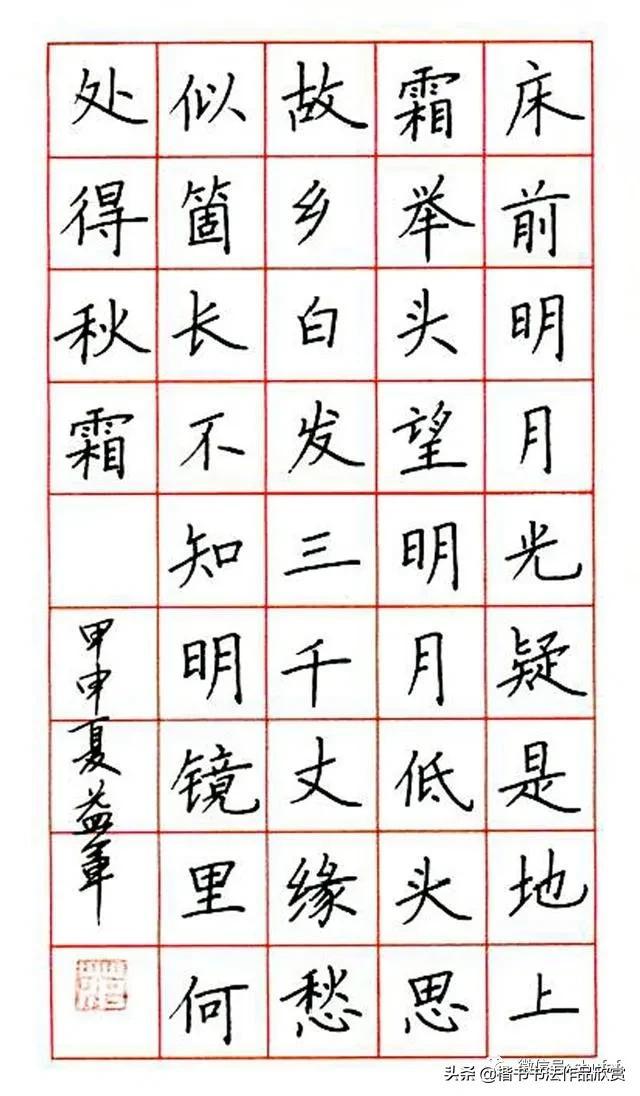 床前明月光疑是地上
霜举头望明月低头思
故乡白发三千丈缘愁
似箇长不知明镜里何
处得秋霜
甲申夏益军
头条 @楷书书法作品欣赏